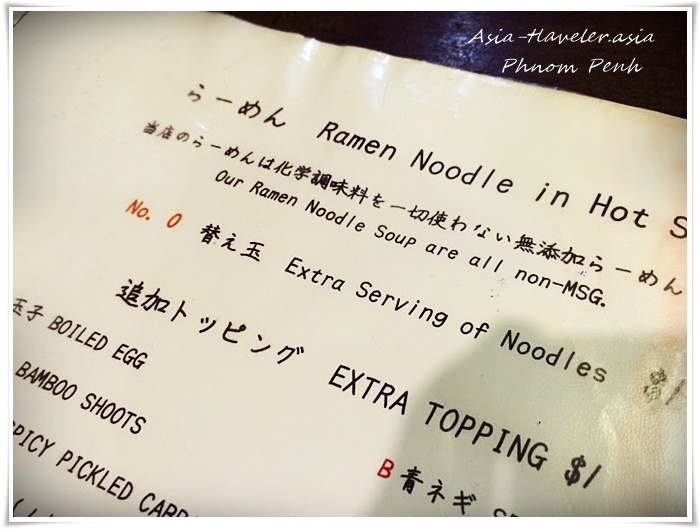 Asia-Traveler.asia
Phnom Penh
らーめん Ramen Noodle in Hot S
当店のらーめんは化学調味料を一切使わない無添加らーめん
Our Ramen Noodle Soup are all non-MSG.
No. 0 替え玉 Extra Serving of Noodles $1
追加トッピング EXTRA TOPPING $1
玉子 BOILED EGG
BAMBOO SHOOTS
B 青ネギ
SPICY PICKLED